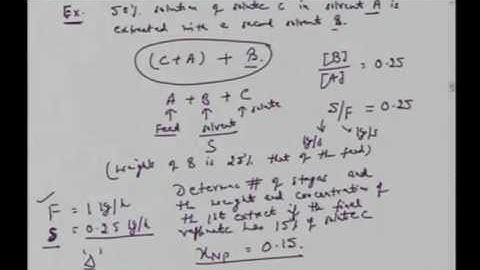 Ex. 50% solution of solute C in solvent A is
extracted with a second solvent B.
(C+A) + B.
[B]/[A] = 0.25
A + B + C
Feed solvent solute
S
S/F = 0.25
kg/s kg/s
(weight of B is 25% that of the feed)
F = 1 kg/h
S = 0.25 kg/h
'Δ'
Determine # of stages and
the weight and concentration of
the 1st extract if the final
raffinate has 15% of solute C
xNP = 0.15.